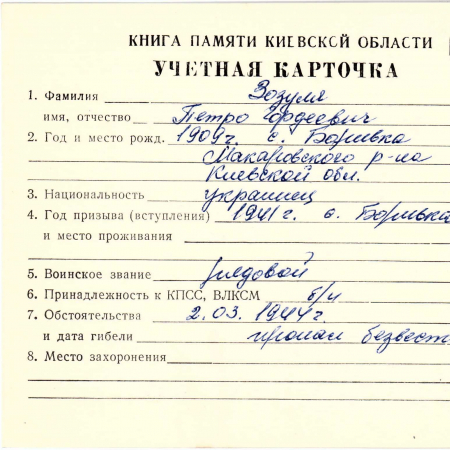 КНИГА ПАМЯТИ КИЕВСКОЙ ОБЛАСТИ
УЧЕТНАЯ КАРТОЧКА
1. Фамилия Зозуля
имя, отчество Петро Гордеевич
2. Год и место рожд. 1909г. с. Боривка
Макаровского р-на
Киевской обл.
3. Национальность украинец
4. Год призыва (вступления) 1941г. с. Боривка
и место проживания
5. Воинское звание рядовой
6. Принадлежность к КПСС, ВЛКСМ б/п
7. Обстоятельства 2.03.1944г.
и дата гибели пропал безвест
8. Место захоронения